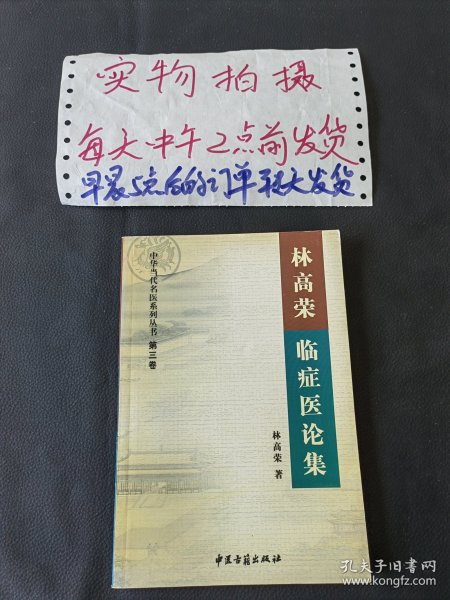 实物拍摄
每天中午2点前发货
早晨5点后的订单明天发货
林高荣
临症医论集
中华当代名医系列丛书 第三卷
林高荣 著
中医古籍出版社
孔夫子旧书网
www.kongfz.com